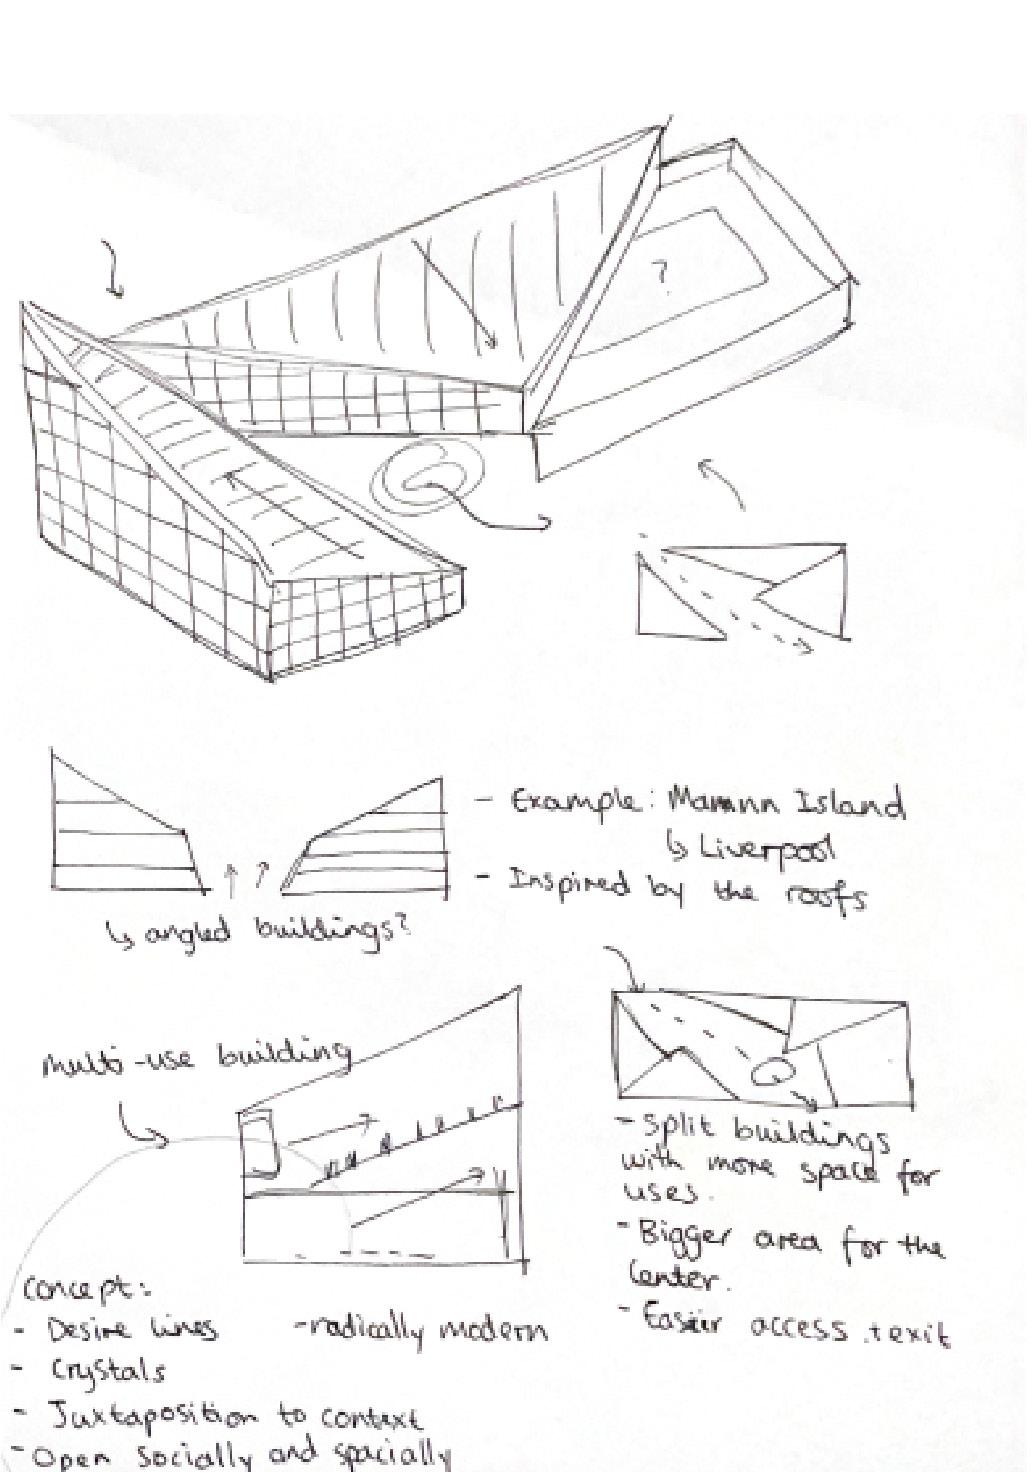 ?
- Example: Mamnn Island
↳ Liverpool
- Inspired by the roofs
↳ angled buildings?
multi-use building
- Split buildings
with more space for
uses.
- Bigger area for the
Center.
- Easier access + exit
Concept:
- Desire lines
- radically modern
- Crystals
- Juxtaposition to context
- Open Socially and spacially